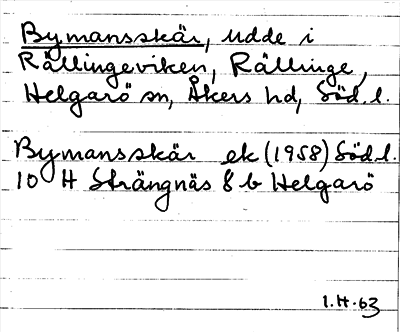 Bymansskär, udde i
Rällingeviken, Rällinge,
Helgarö sn, Åkers hd, Söd. l.
Bymansskär ek (1958) Söd. l.
10 H Strängnäs 8 b Helgarö
1.H.63